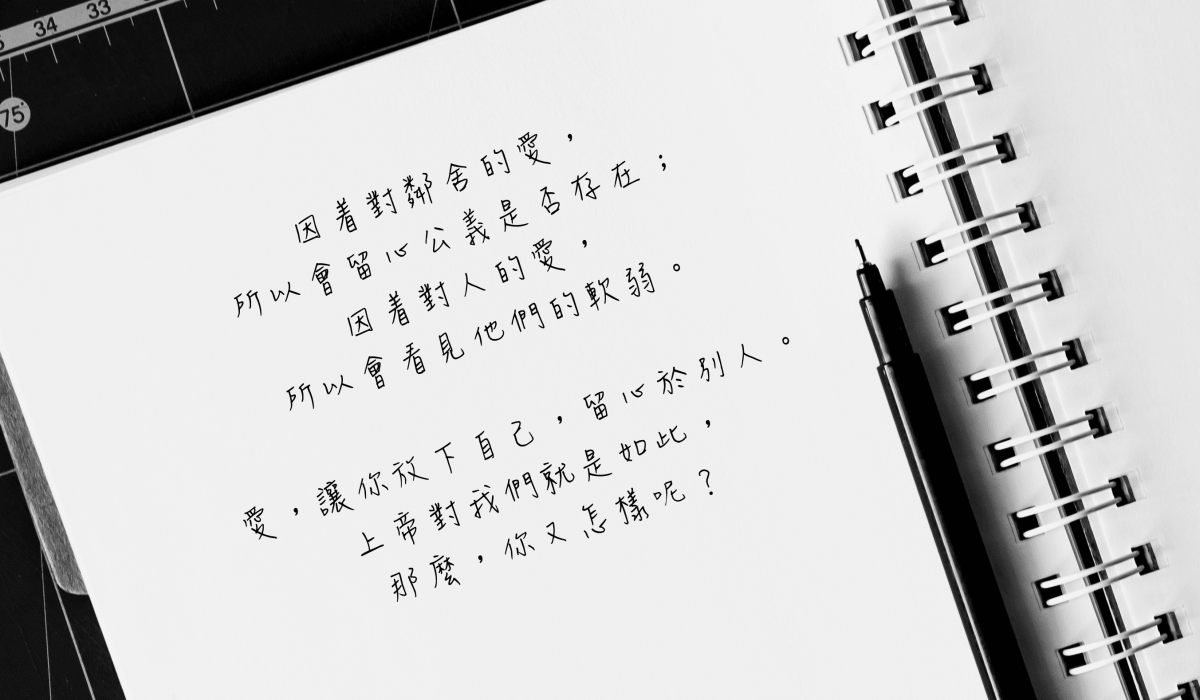 34 33
75°
因着對鄰舍的愛，
所以會留心公義是否存在；
因着對人的愛，
所以會看見他們的軟弱。
愛，讓你放下自己，留心於別人。
上帝對我們就是如此，
那麼，你又怎樣呢？